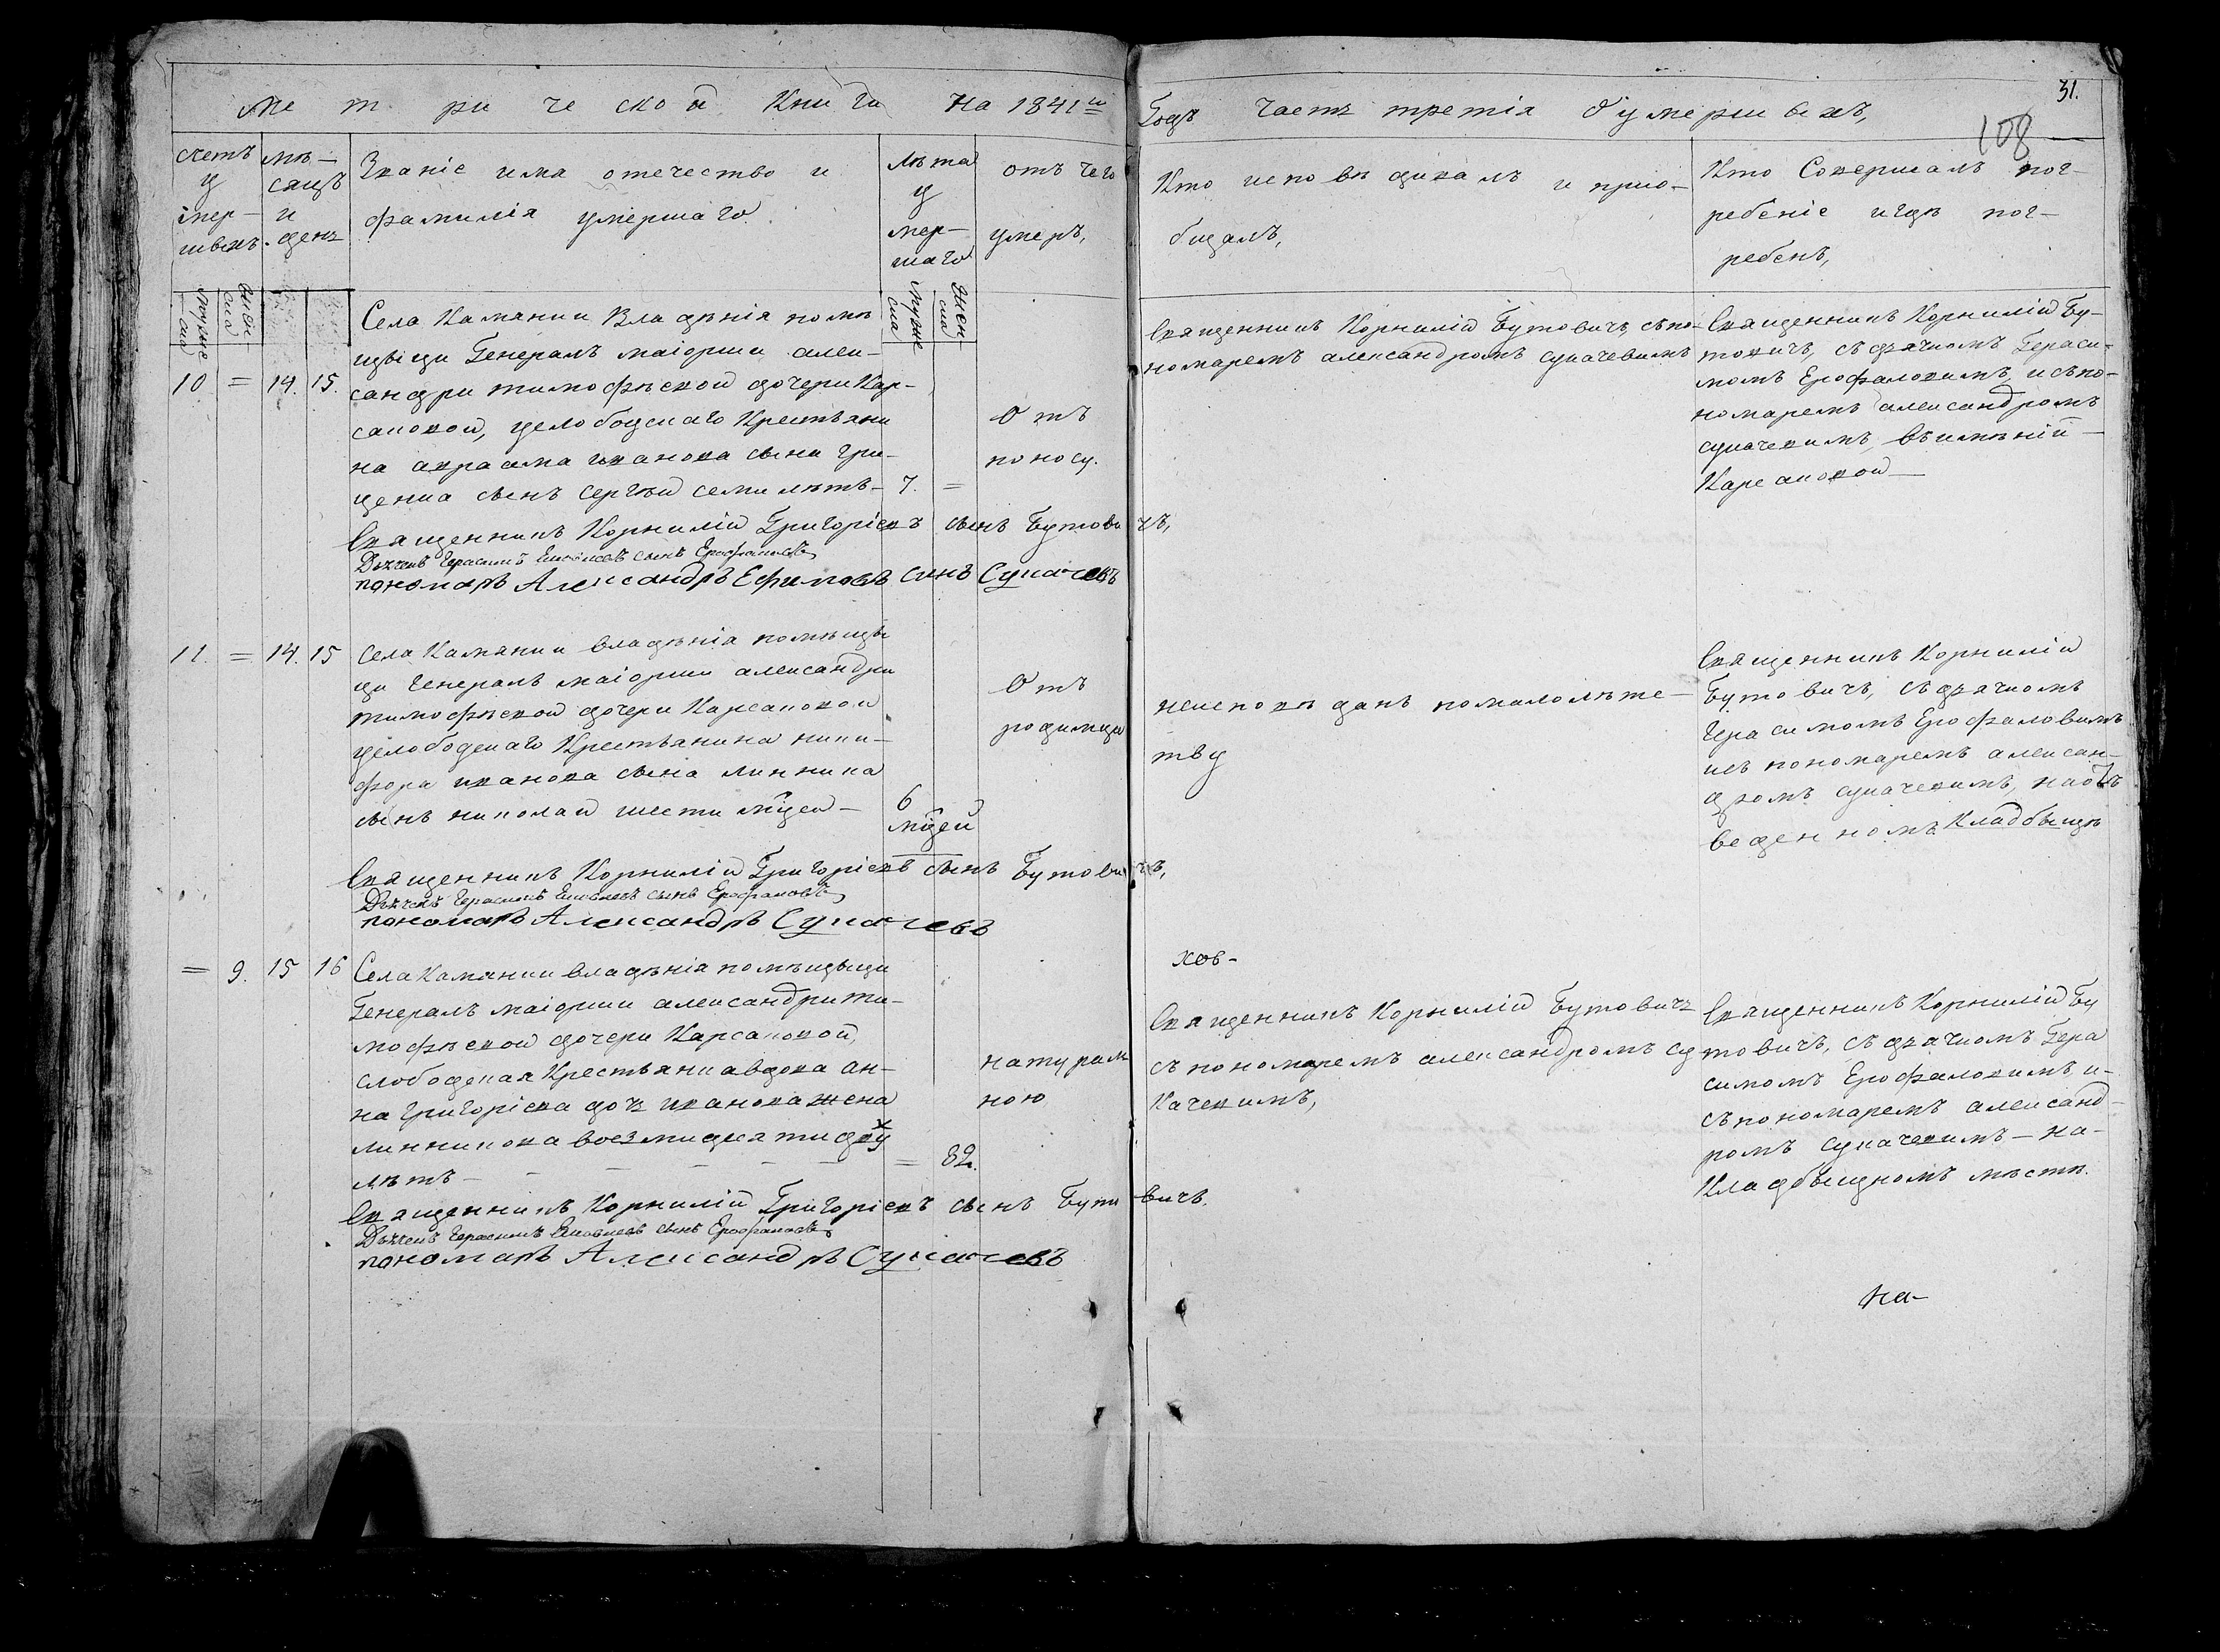 Метрической Книги на 1841й
Годъ Часть третія О умершихъ,
31.
108
счетъ умершихъ.
мѣсяцъ и день
Званіе има отечество и
фамилія умершаго
Лѣта умершаго
отъ чего
умеръ,
Кто исповѣдивалъ и прио-
бщалъ,
Кто Совершалъ пог-
ребеніе и гдѣ пог-
ребенъ,
мужеска
женска
мужеска
женска
10 = 14. 15.
Села Камянки Владѣнія помѣ
щыци Генералъ маіорши алек-
сандри тимофѣевой дочери Кар-
саковой, ... Крестьяни
на авраама иванова сына Гри-
ценка сынъ сергѣй семи лѣтъ - 7. =
Отъ
поносу.
Священникъ Корнилій Бутовичъ, съ по-
номаремъ александромъ сукачевимъ
Священникъ Корнилій Бу-
товичъ, съ дячкомъ Гераси-
момъ Ерофаловимъ и съ по-
номаремъ александромъ
сукачевимъ, въ имѣній
Карсаковой
Священникъ Корнилій Григоріевъ сынъ Бутовичъ,
Дьячекъ Герасимъ Яковлевъ сынъ Ерофаловъ
пономаръ Александръ Ефимовъ синъ Сукачевъ
11. = 14. 15
Села Камянки владѣнія помѣщы
ци Генералъ маіорши александри
тимофѣевой дочери Карсаковой
... Крестьянина ники-
фора иванова сына линника
сынъ николай шести мцей -
6
мцей
Отъ
родимца
неисповѣданъ помалолѣте-
тву
Священникъ Корнилій
Бутовичъ, съ дячкомъ
Герасимомъ Ерофаловимъ
и съ пономаремъ алексан-
дромъ сукачевимъ, на от
веденномъ Кладбыщѣ
Священникъ Корнилій Григоріевъ сынъ Бутовичъ,
Дьячекъ Герасимъ Яковлевъ сынъ Ерофаловъ
пономаръ Александръ Сукачевъ
= 9. 15 16
Села Камянки владѣнія помѣщыци
Генералъ маіорши александри ти-
мофѣевой дочери Карсаковой,
слободская Крестьянка вдова ан-
на Григоріева дочь иванова жена
линникова восэмидесяти двух
лѣтъ - = 82.
натураль
ною
Священникъ Корнилій Бутовичъ
съ пономаремъ александромъ су
качевимъ,
Священникъ Корнилій Бу
товичъ, съ дячкомъ Гера
симомъ Ерофаловимъ и-
съ пономаремъ александ-
ромъ сукачевимъ - на-
Кладбыщномъ мѣстѣ.
Священникъ Корнилій Григоріевъ сынъ Бутовичъ.
Дьячекъ Герасимъ Яковлевъ сынъ Ерофаловъ
пономаръ Александръ Сукачевъ
на-